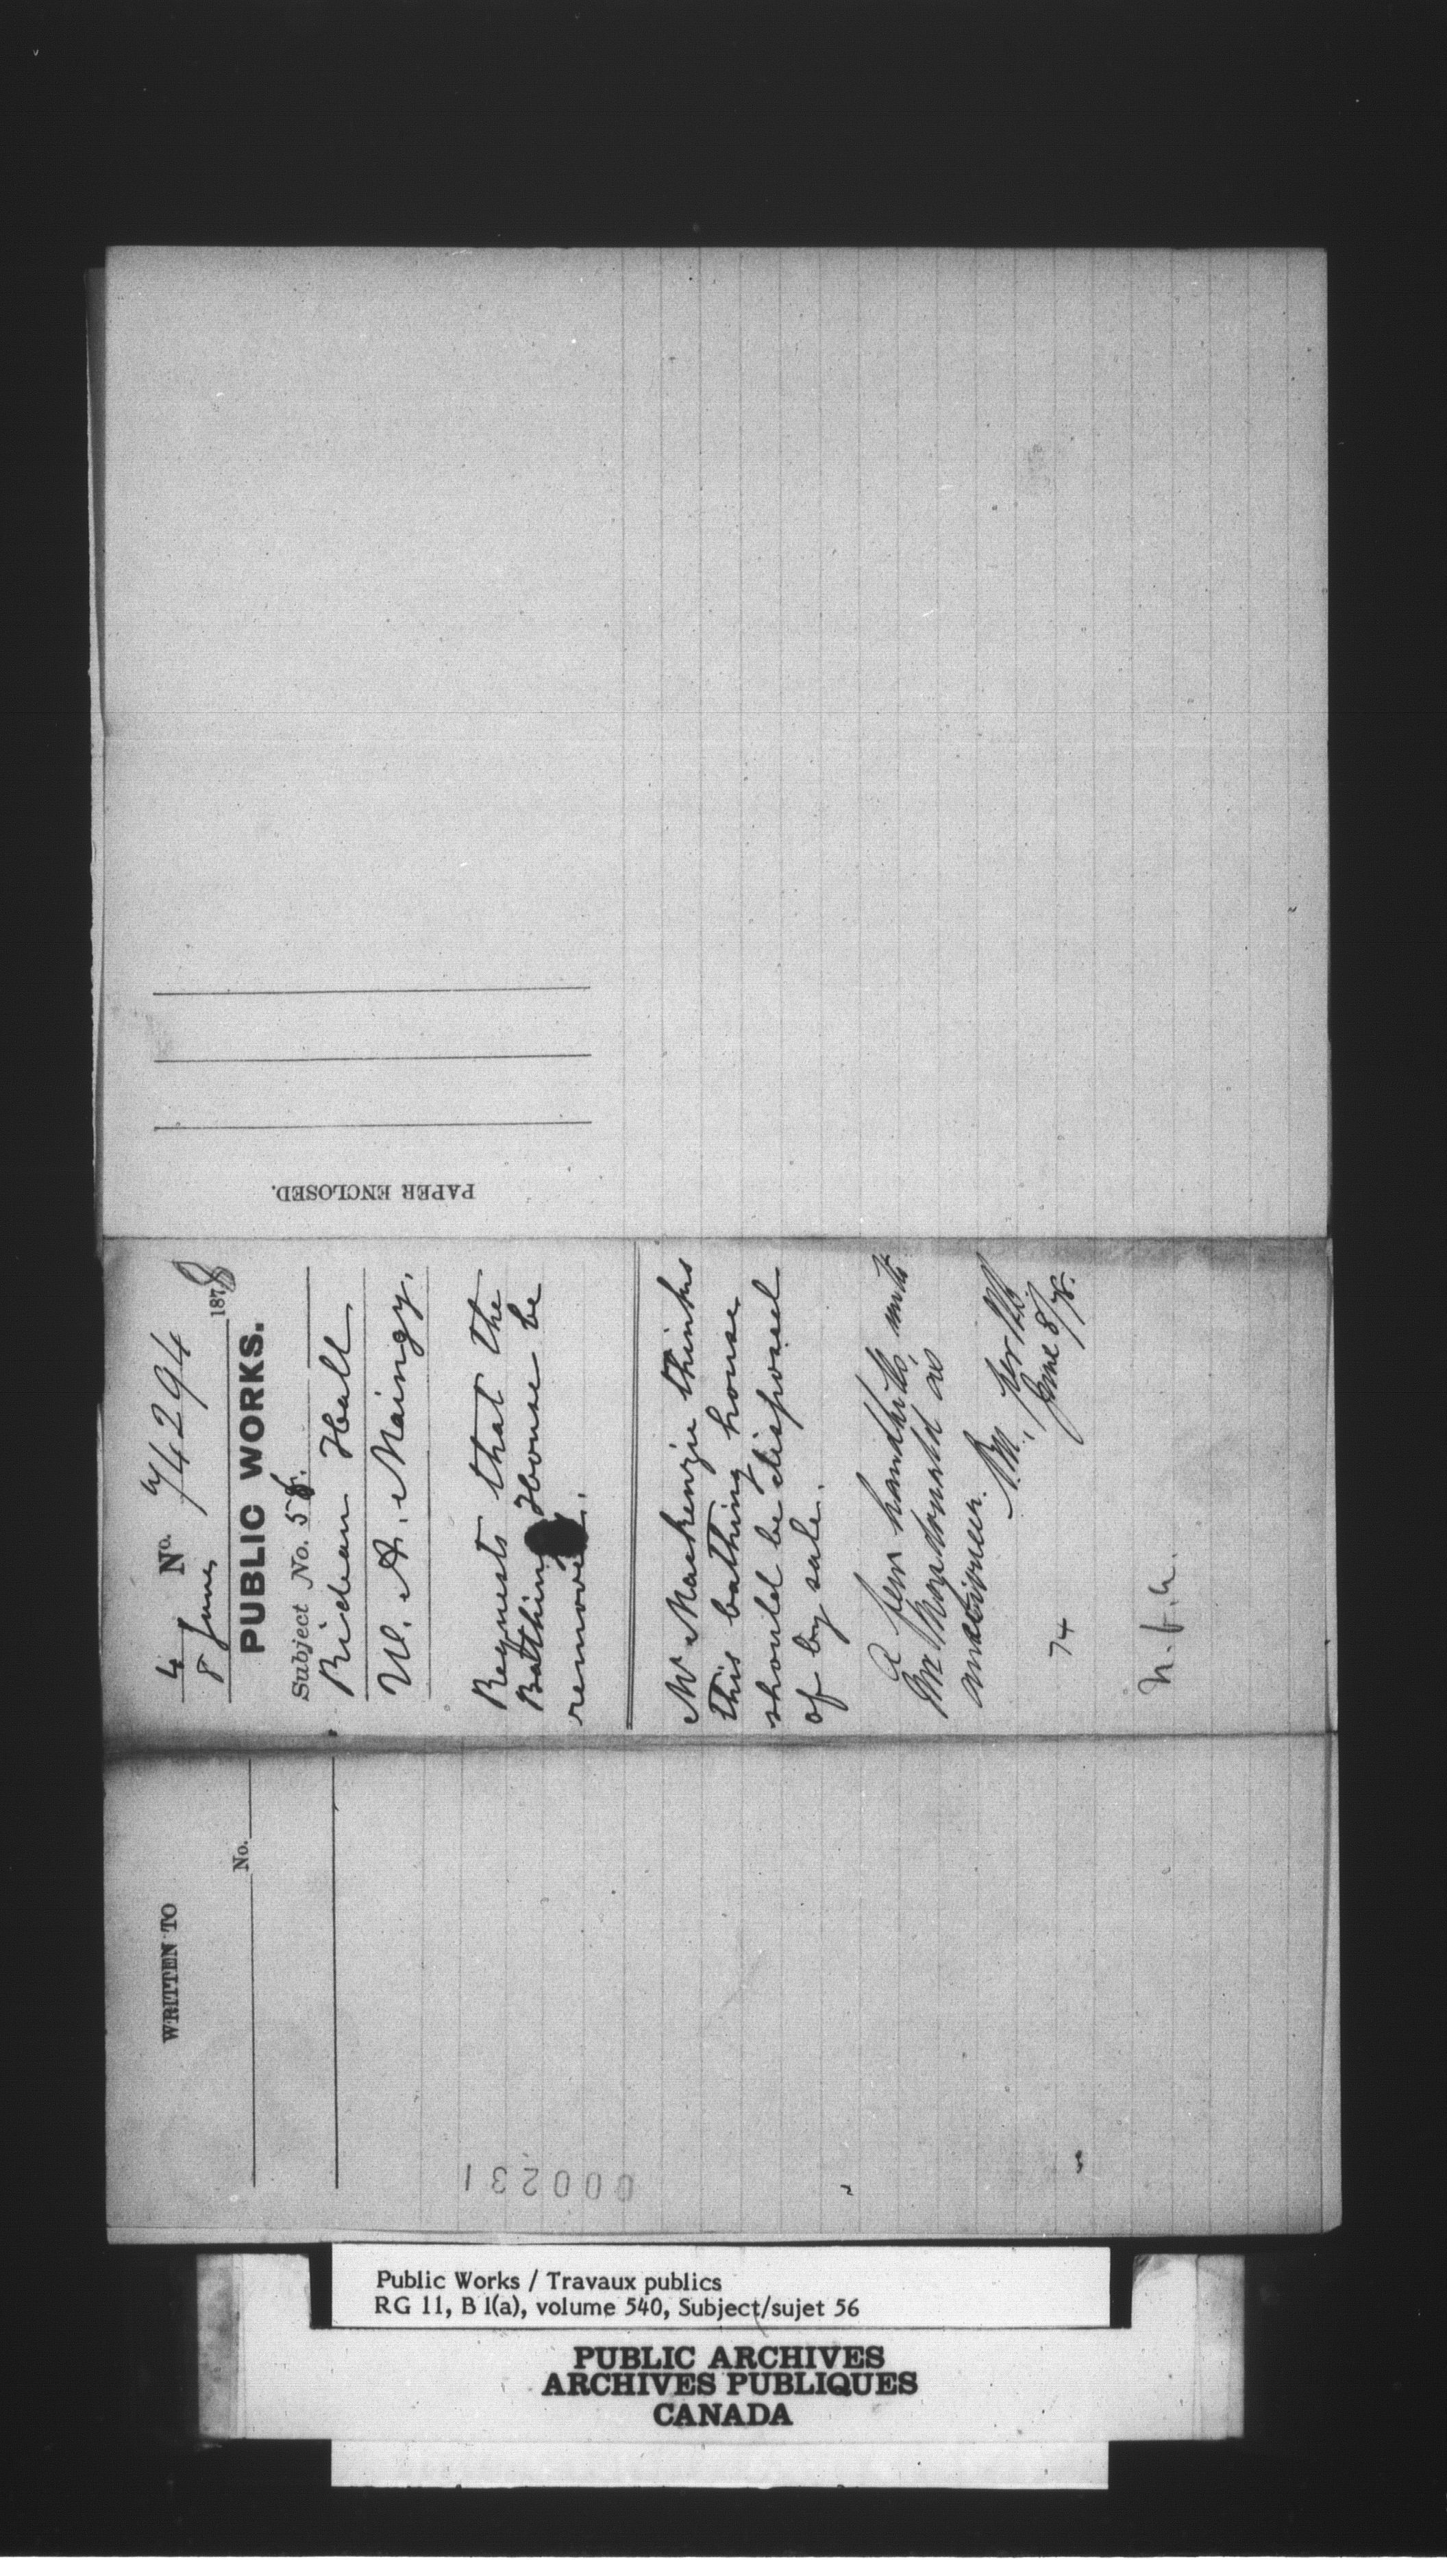 4 No. 74294
8 June 1878
PUBLIC WORKS.
Subject No. 56.
Rideau Hall
W. A. Maingy.
Requests that the
Bathing House be
removed.
Mr Mackenzie thinks
this bathing house
should be disposed
of by sale.
A few handbills, with
Mr Macdonald as
auctioneer.
June 8/78.
74
PAPER ENCLOSED.
WRITTEN TO
No.
000231
Public Works / Travaux publics
RG 11, B 1(a), volume 540, Subject/sujet 56
PUBLIC ARCHIVES
ARCHIVES PUBLIQUES
CANADA